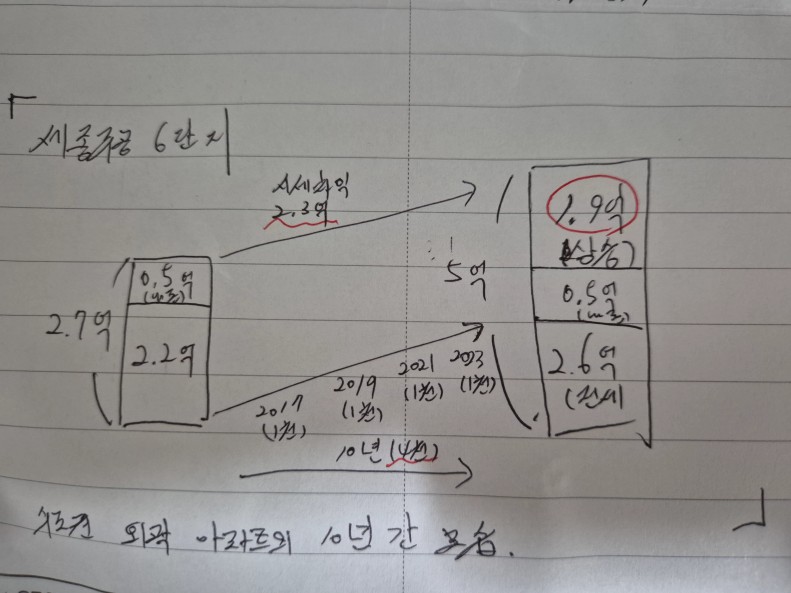 세종주공 6단지
시세차익
2.3억
1.9억
(상승)
0.5억
2.7억
2.2억
5억
0.5억
2.6억
(전세)
2017
(1천)
2019
(1천)
2021
(1천)
2023
(1천)
10년 (4천)
수도권 외곽 아파트의 10년간 모습.